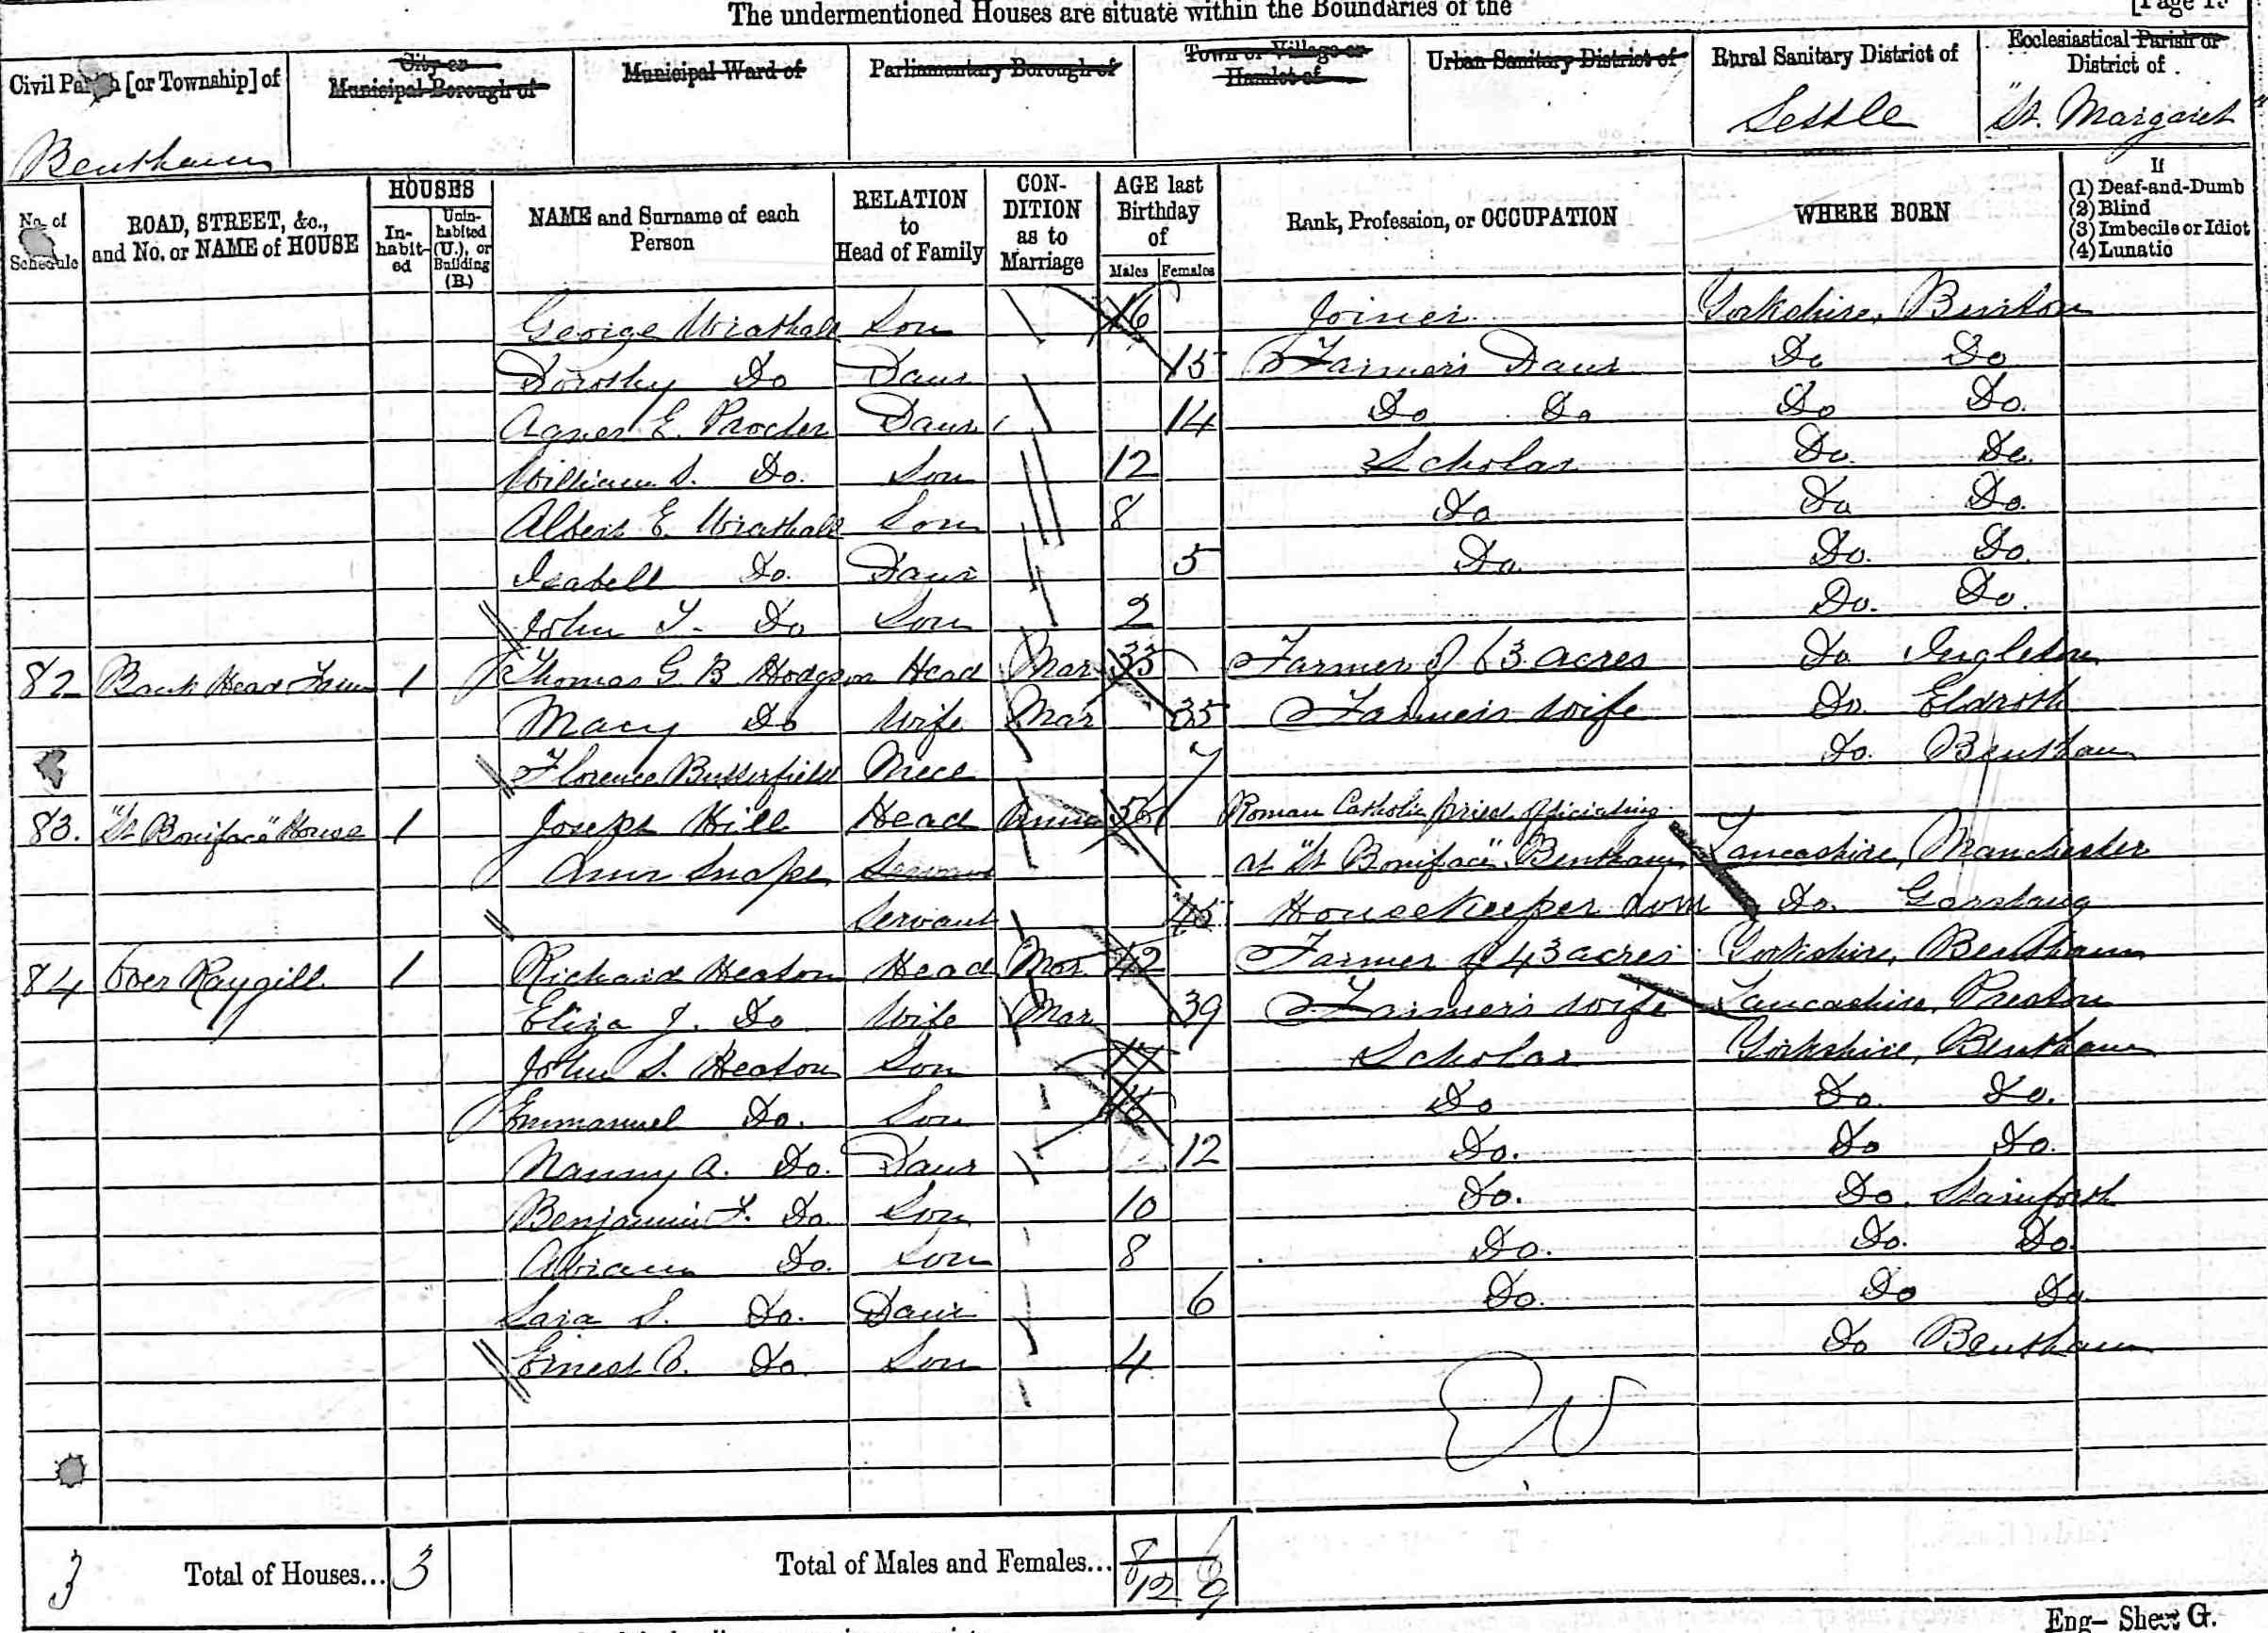 The undermentioned Houses are situate within the Boundaries of the
[Page 15
Civil Parish [or Township] of
City or Municipal Borough of
Municipal Ward of
Parliamentary Borough of
Town or Village or Hamlet of
Urban Sanitary District of
Rural Sanitary District of
Ecclesiastical Parish or District of
Bentham
Settle
"St. Margaret"
No. of Schedule
ROAD, STREET, &c., and No. or NAME of HOUSE
HOUSES
In-habit-ed
Unin-habited (U.), or Building (B.)
NAME and Surname of each Person
RELATION to Head of Family
CON-DITION as to Marriage
AGE last Birthday of
Males Females
Rank, Profession, or OCCUPATION
WHERE BORN
If
(1) Deaf-and-Dumb
(2) Blind
(3) Imbecile or Idiot
(4) Lunatic
George Wrathall Son 16 Joiner Yorkshire, Burton
Dorothy Do Daur 15 Farmer's Daur Do Do
Agnes E. Procter Daur 14 Do Do Do Do.
William S. Do. Son 12 Scholar Do Do.
Albert E. Wrathall Son 8 Do Do Do.
Isabell Do. Daur 5 Do. Do. Do.
John T. Do Son 2 Do. Do.
82 Bank Head Farm 1 Thomas G. B. Hodgson Head Mar 33 Farmer of 63 acres Do Ingleton
Mary Do Wife Mar 35 Farmers wife Do. Eldroth
Florence Butterfield Niece 7 Do. Bentham
83. "St Boniface" House 1 Joseph Hill Head Unmar 56 Roman Catholic Priest officiating
at "St Boniface", Bentham Lancashire, Manchester
Ann Snape Servant
Servant 45 Housekeeper dom Do. Garstang
84 Over Raygill 1 Richard Heaton Head Mar 42 Farmer of 43 acres Yorkshire, Bentham
Eliza J. Do Wife Mar 39 Farmer's wife Lancashire, Preston
John S. Heaton Son Scholar Yorkshire, Bentham
Emmanuel Do. Son Do Do. Do.
Nanny A. Do. Daur 12 Do. Do Do.
Benjamin F. Do. Son 10 Do. Do, Stainforth
Abiam Do. Son 8 Do. Do. Do.
Sara S. Do. Daur 6 Do. Do Do.
Ernest Do. Son 4 Do Bentham
3 Total of Houses... 3 Total of Males and Females... 8 12 9
Eng- Sheet G.